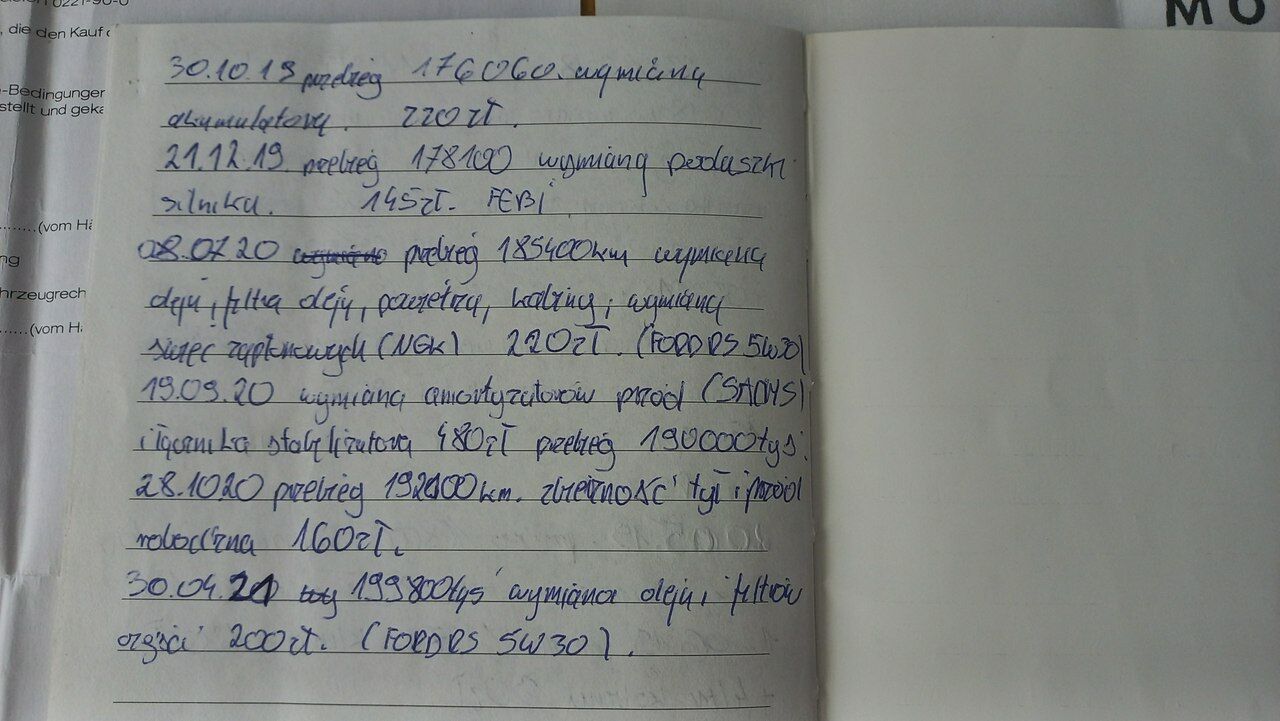 0221-90-0
, die den Kauf
-Bedingungen
stellt und geka
(vom Hä
ng
hrzeugrech
(vom Hä
MO
30.10.19 przebieg 176060. wymiana
akumulatora. 220zł.
21.12.19. przebieg 178100 wymiana poduszki
silnika. 145zł. FEBI
08.07.20 przebieg 185400km wymiana
oleju, filtra oleju, powietrza, kabiny, wymiana
świec zapłonowych (NGK) 220zł. (FORD RS 5W30)
19.09.20 wymiana amortyzatorów przód (SACHS)
i łącznika stabilizatora 480zł przebieg 190000tyś.
28.1020 przebieg 192000km. zbieżność tył i przód
robocizna 160zł.
30.04.21 199800tyś wymiana oleju i filtrów
części 200zł. (FORD RS 5W30).